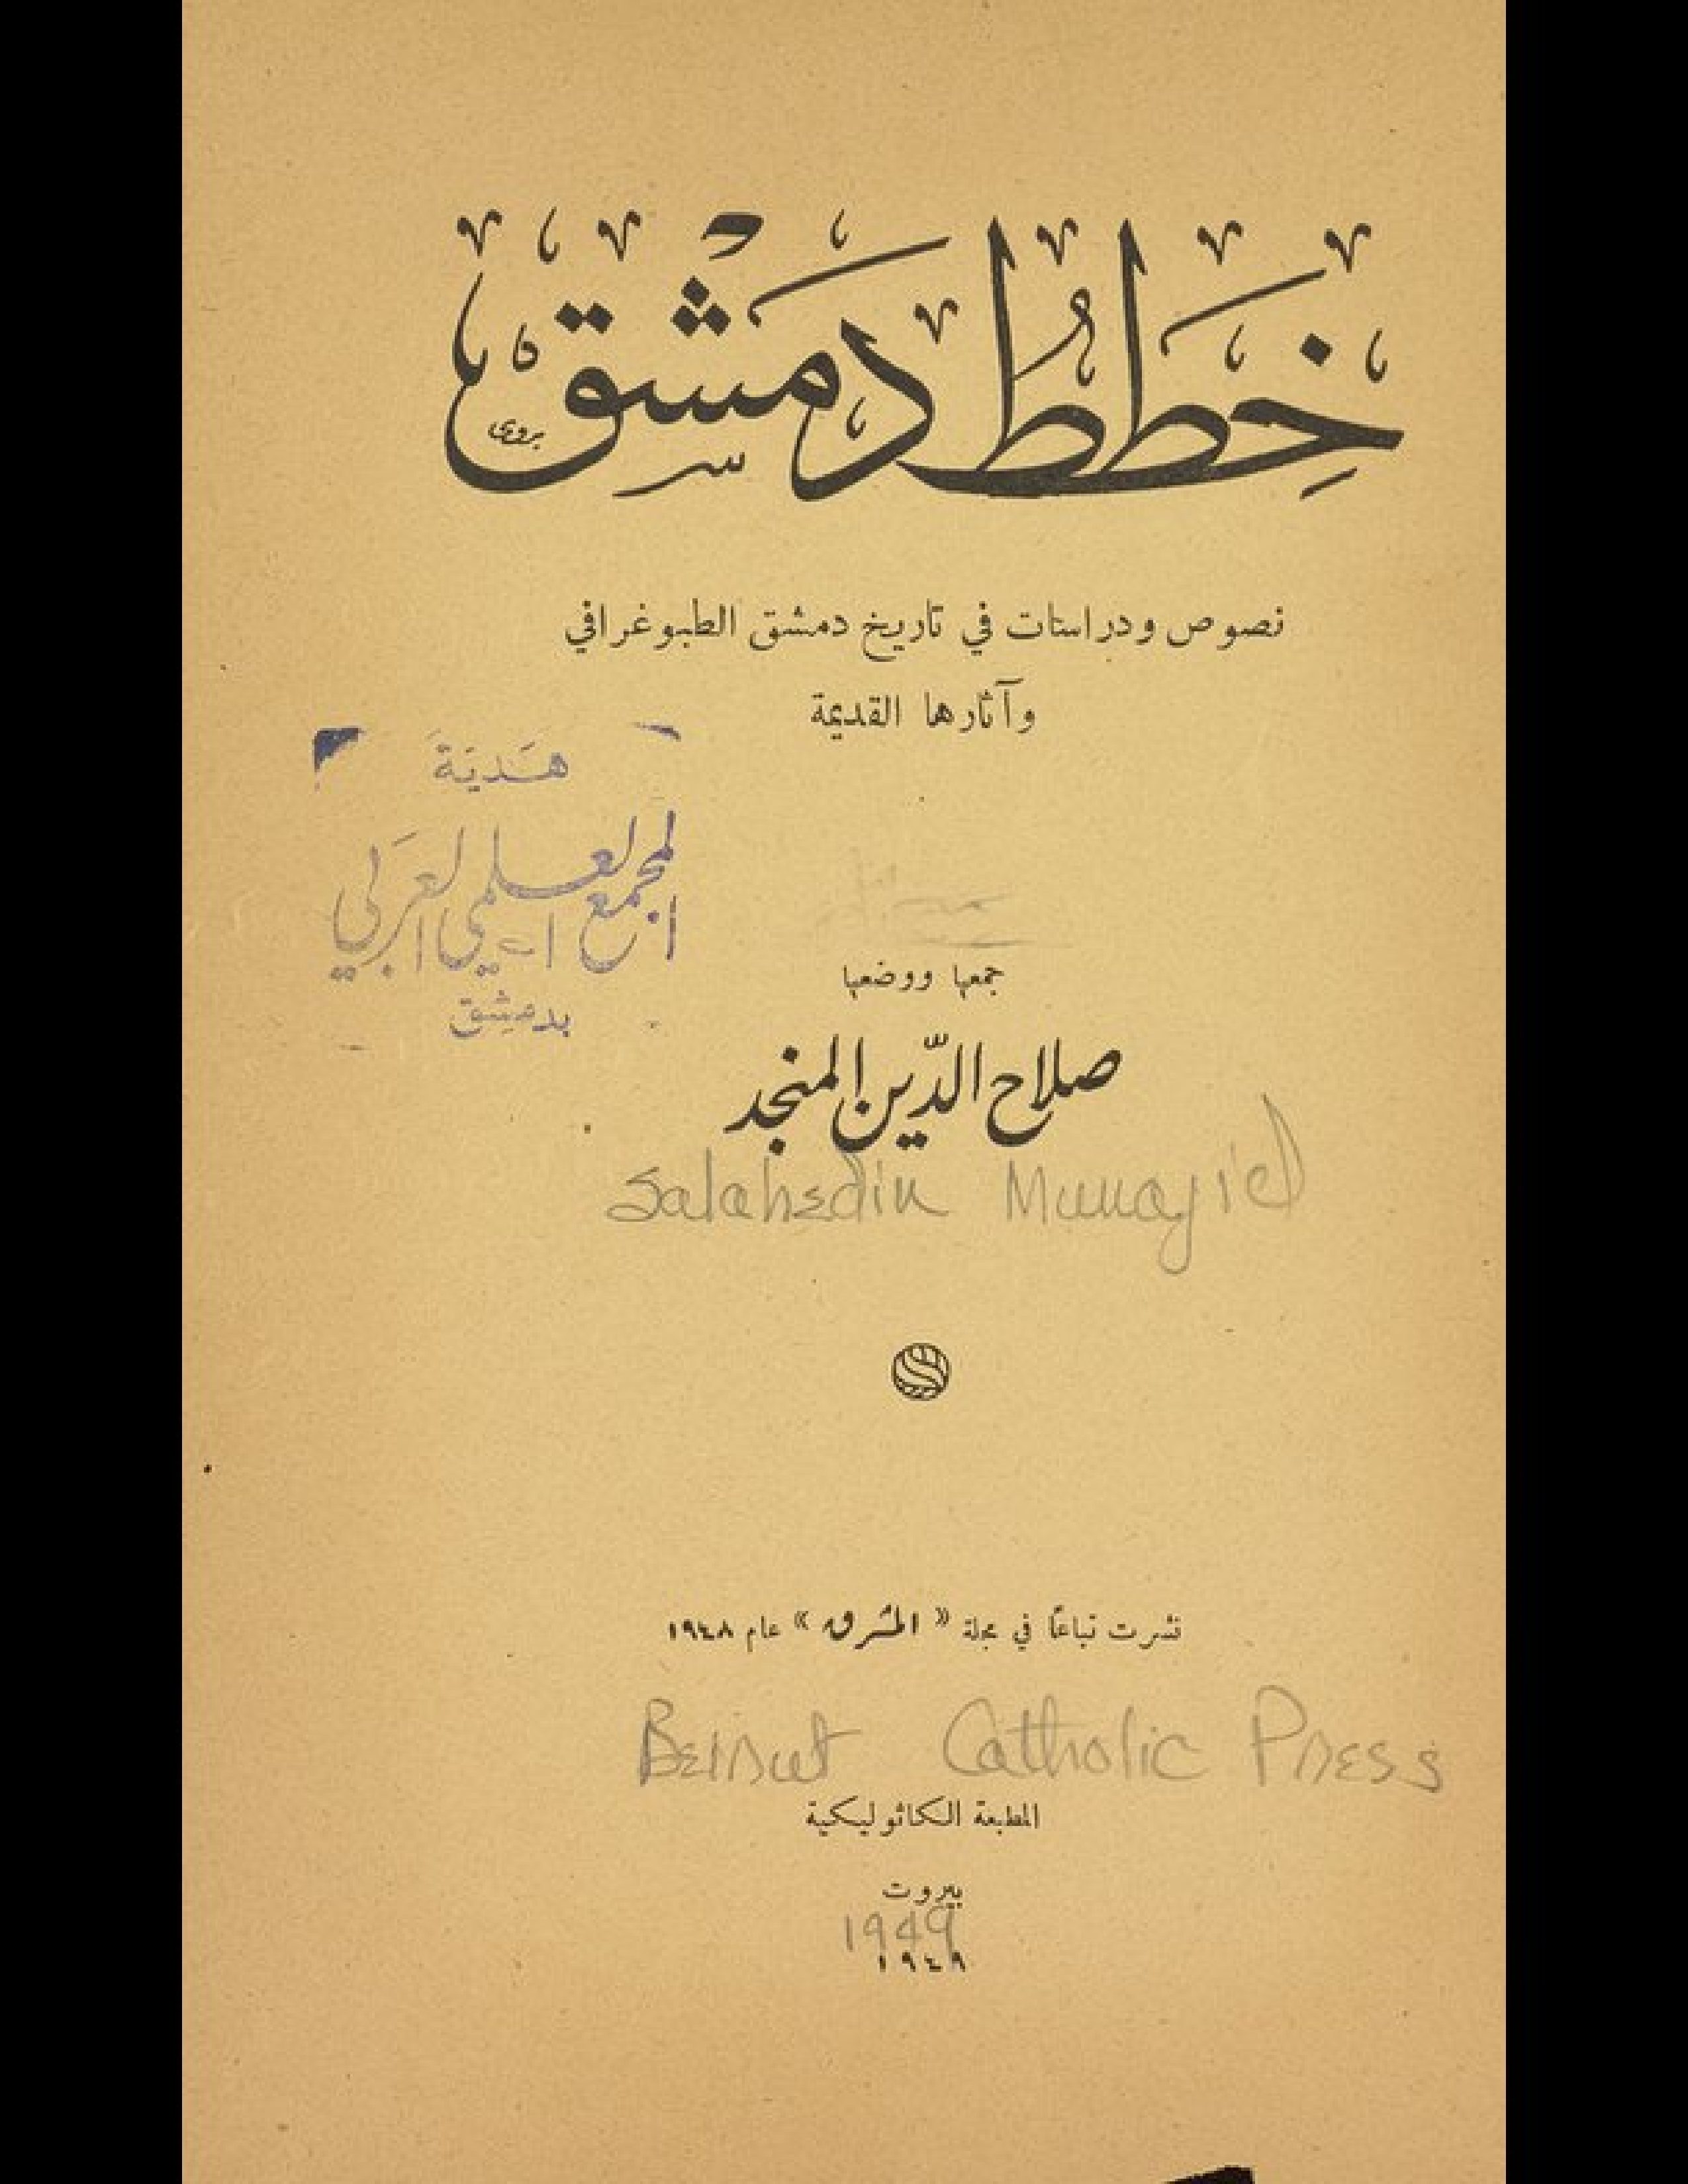 خِطَط دِمَشْق
بدوي
نصوص ودراسات في تاريخ دمشق الطبوغرافي
وآثارها القديمة
هدية
المجمع العلمي العربي
بدمشق
جمعها ووضعها
صلاح الدّين المنجد
Salahedin Munajid
نشرت تباعًا في مجلة « المشرق » عام ١٩٤٨
Beirut Catholic Press
المطبعة الكاثوليكية
بيروت
1949
١٩٤٩